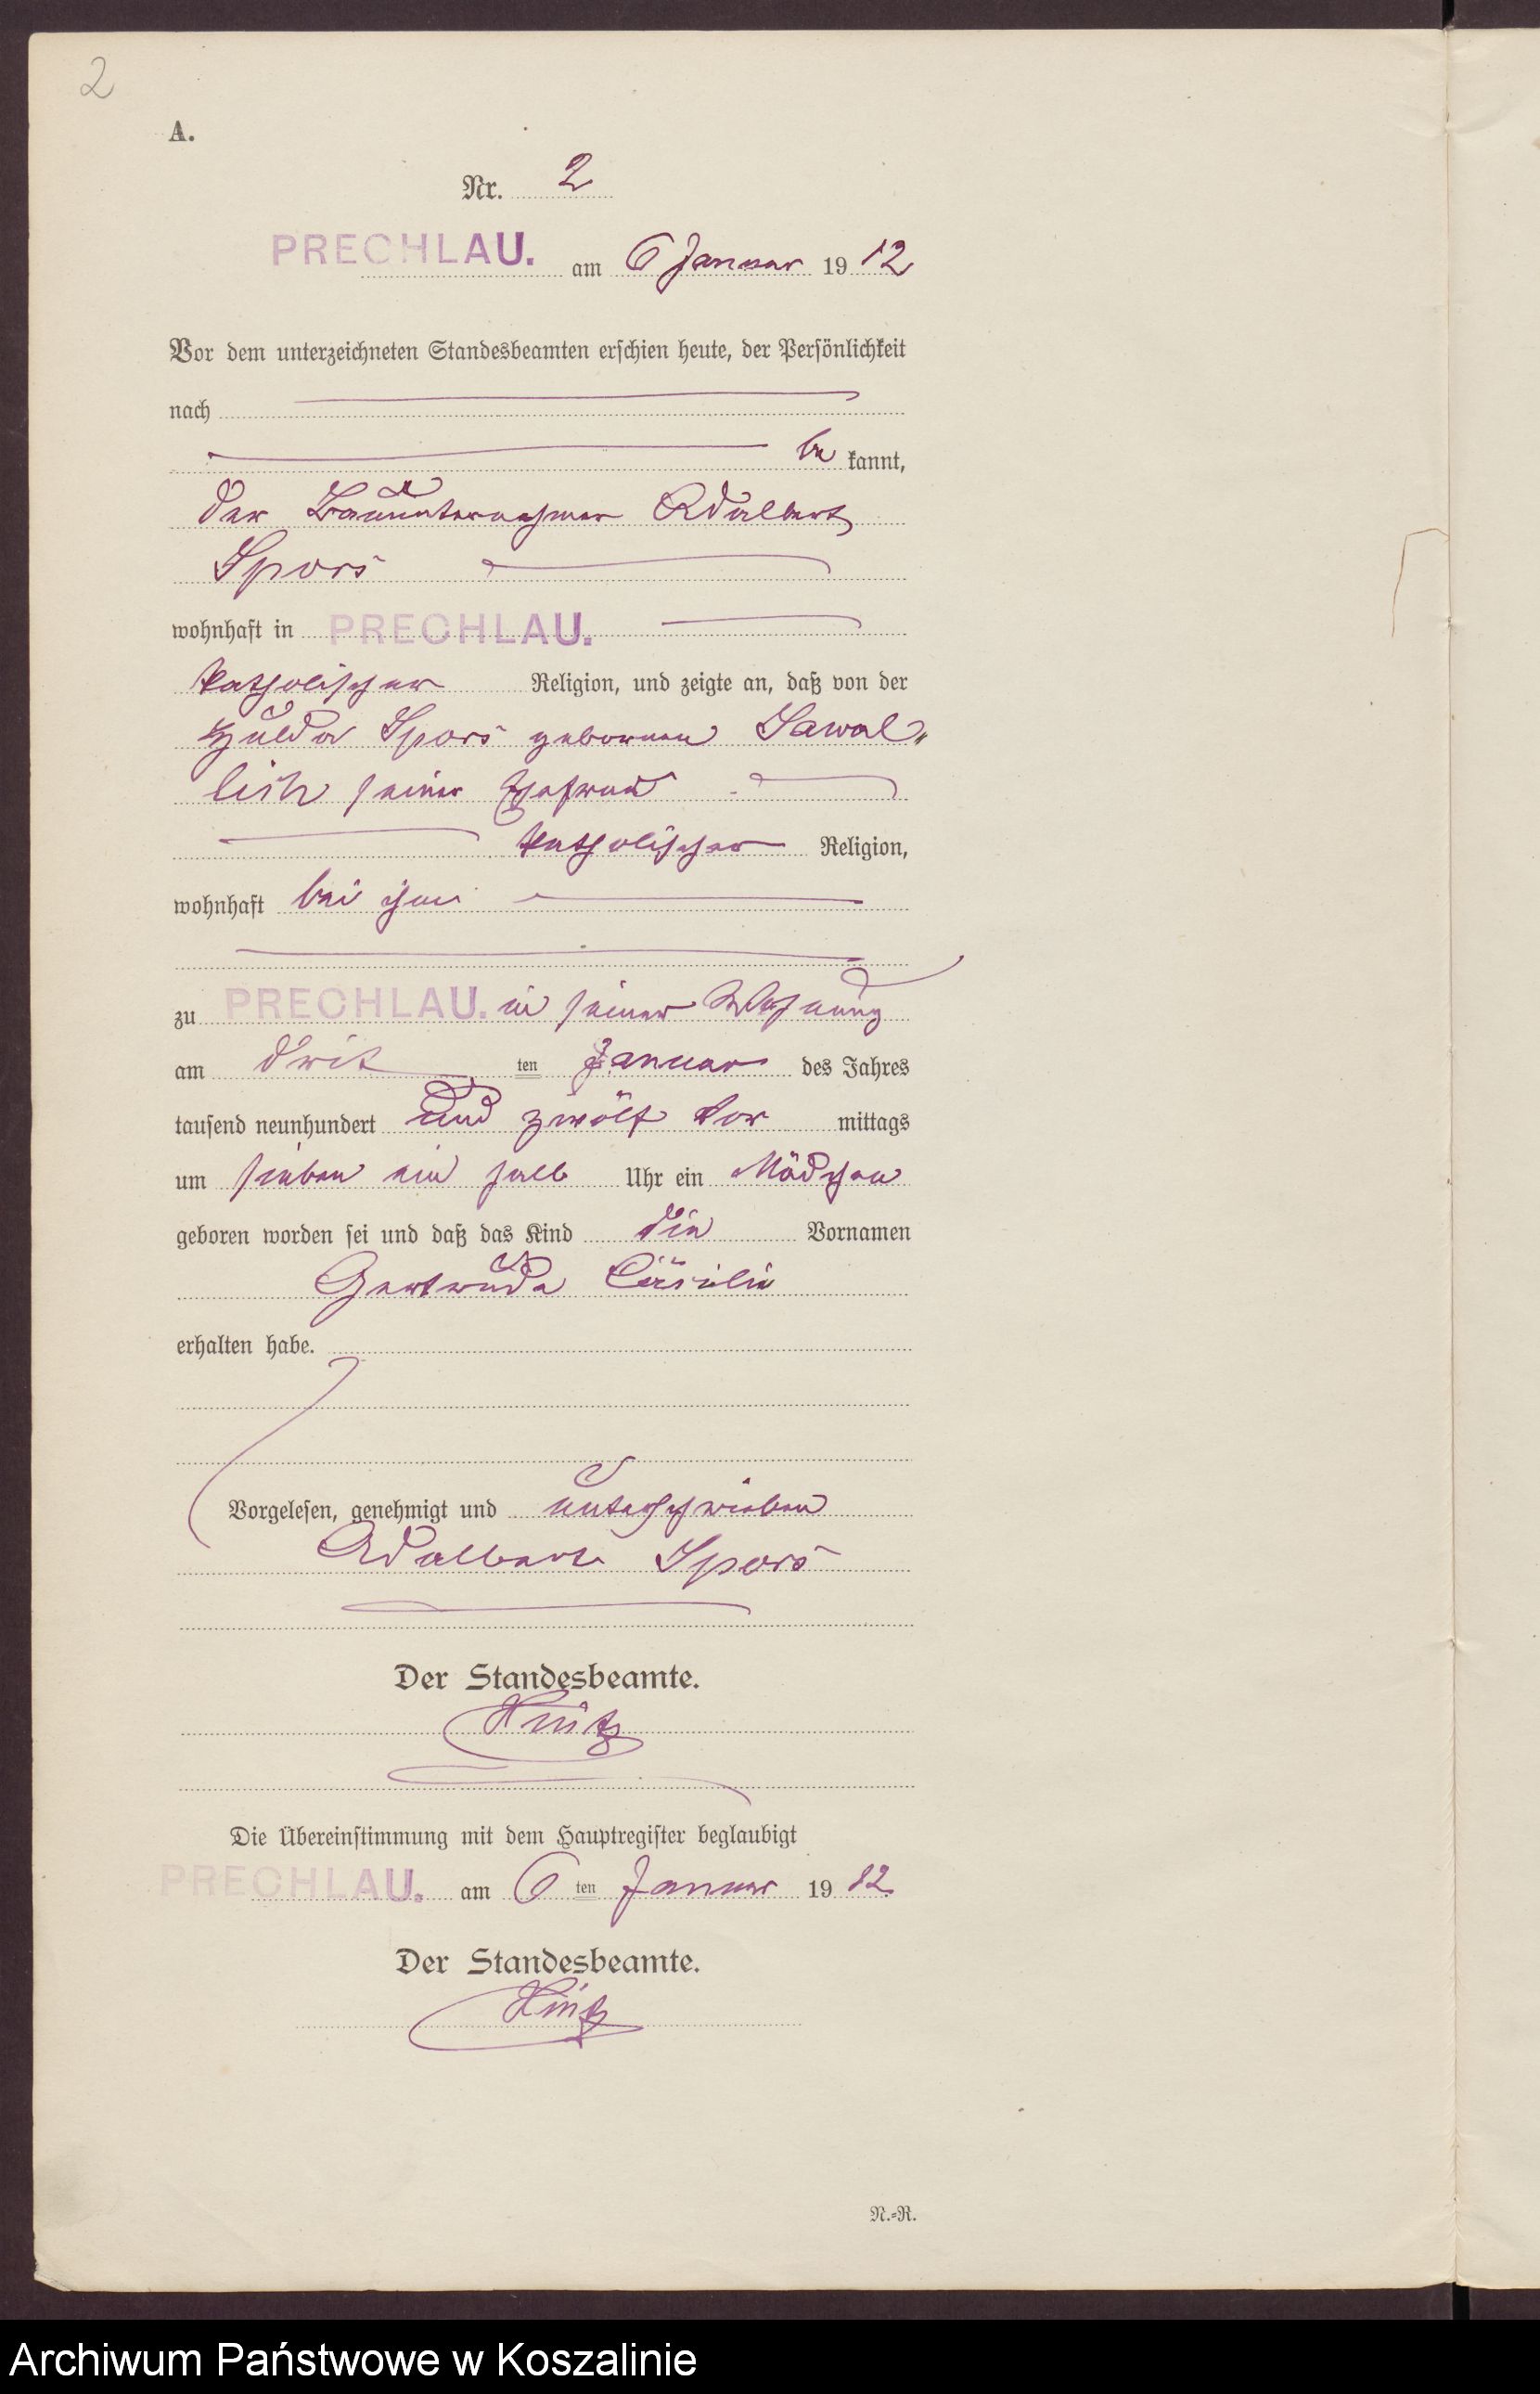 2
A.
Nr. 2
PRECHLAU. am 6 Januar 1912
Vor dem unterzeichneten Standesbeamten erschien heute, der Persönlichkeit
nach
be kannt,
der Bauunternehmer Adalbert
Spors
wohnhaft in PRECHLAU.
katholischer Religion, und zeigte an, daß von der
Hulda Spors geborenen Sawal„
lish seiner Ehefrau
katholischer Religion,
wohnhaft bei ihm
zu PRECHLAU. in seiner Wohnung
am drit ten Januar des Jahres
tausend neunhundert und zwölf vor mittags
um sieben ein halb Uhr ein Mädchen
geboren worden sei und daß das Kind die Vornamen
Gertrude Cäsilie
erhalten habe.
Vorgelesen, genehmigt und unterschrieben
Adalbert Spors
Der Standesbeamte.
Hintz
Die Übereinstimmung mit dem Hauptregister beglaubigt
PRECHLAU. am 6 ten Januar 1912
Der Standesbeamte.
Hintz
N.=R.
Archiwum Państwowe w Koszalinie